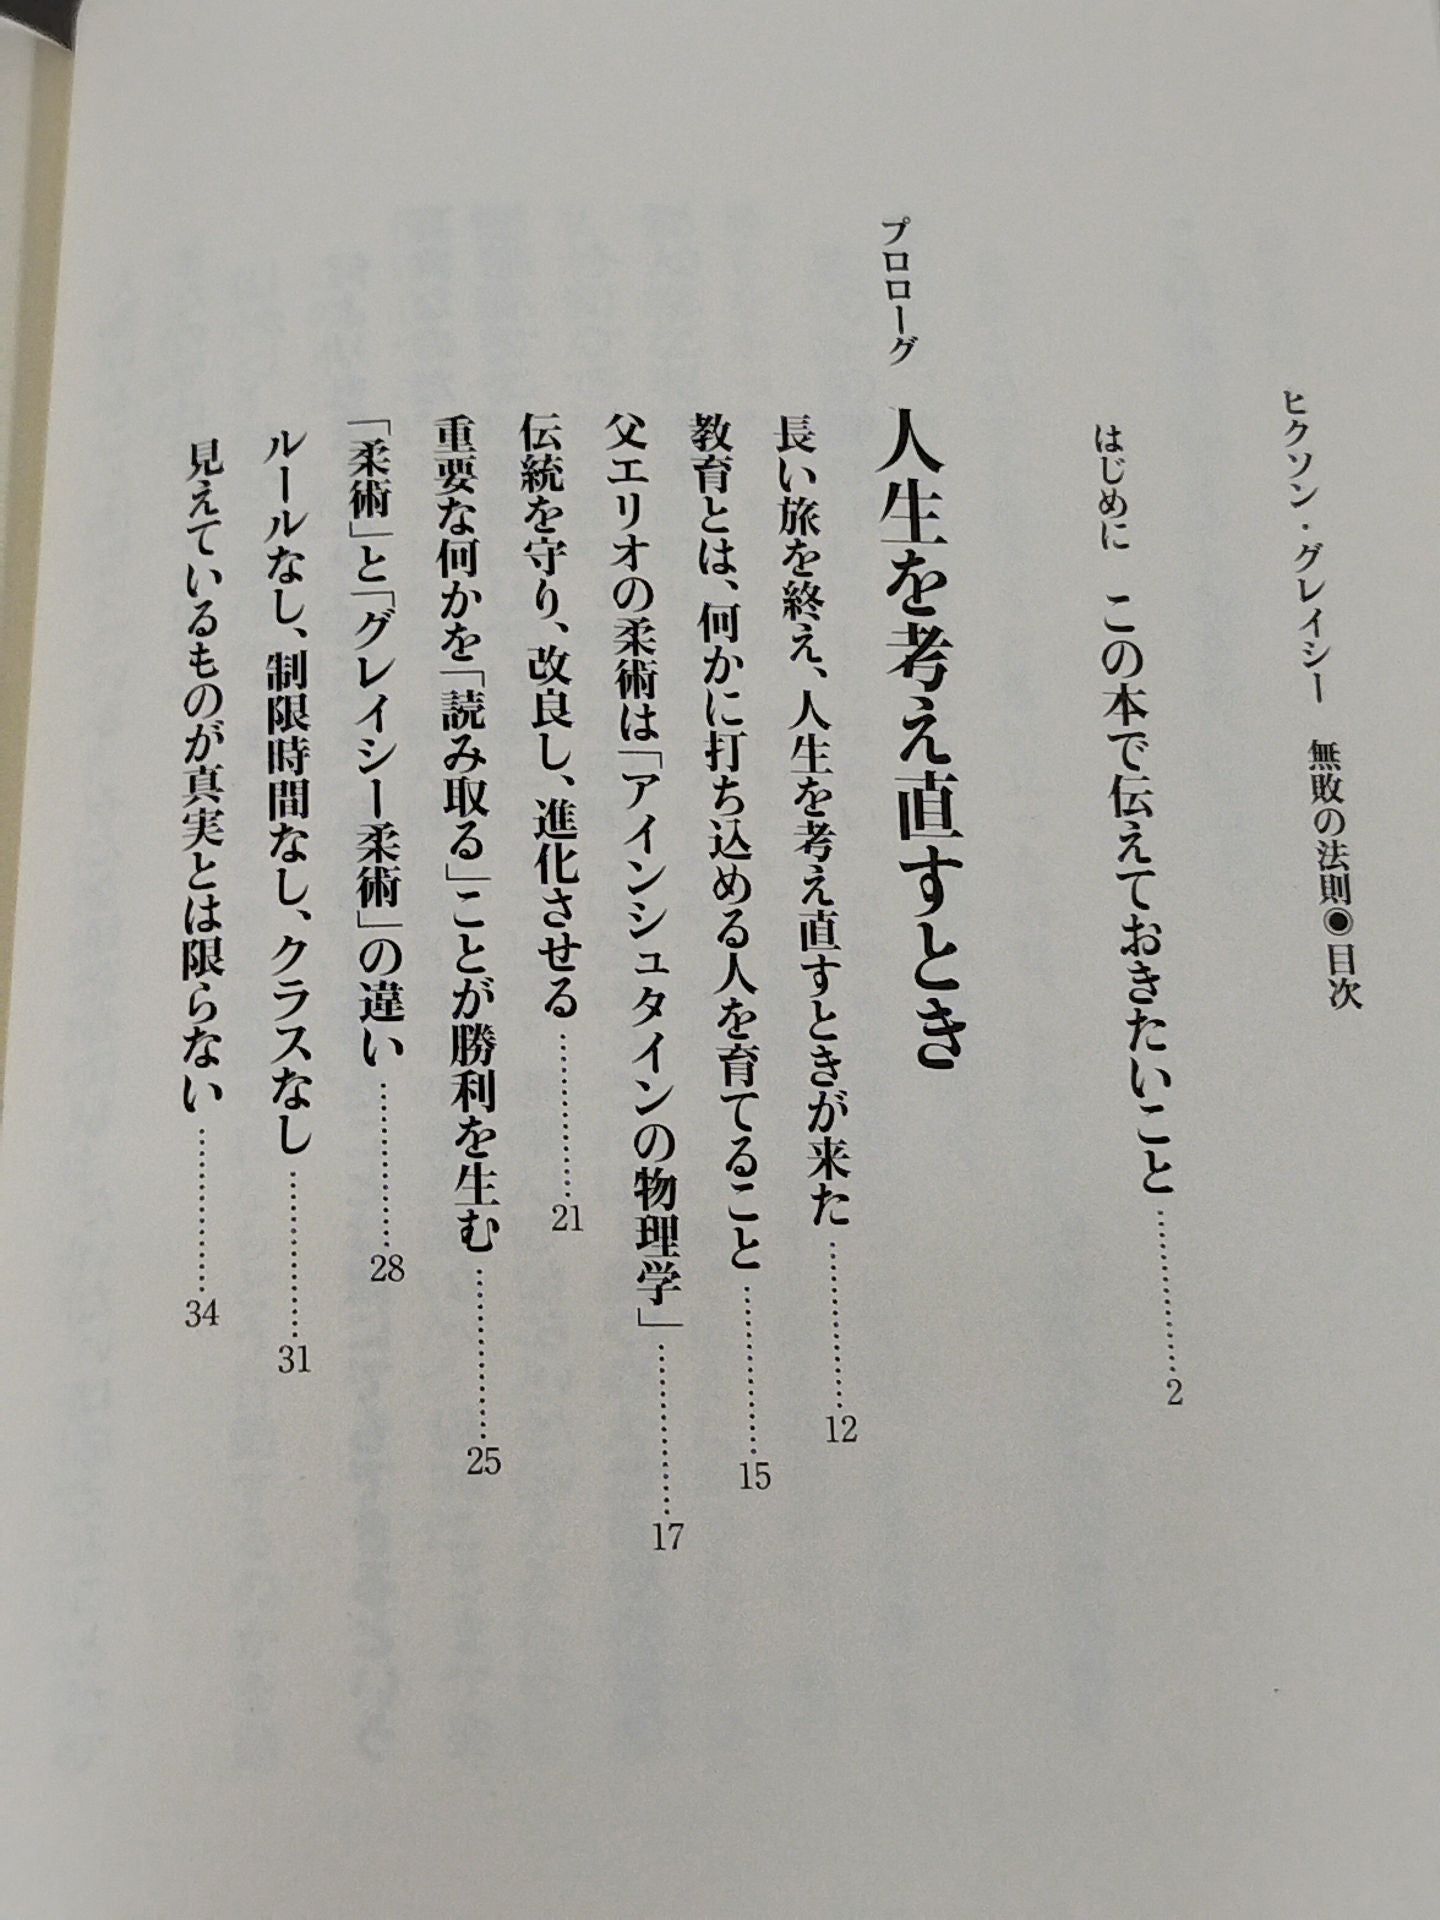 ヒクソン・グレイシー 無敗の法則◉目次
はじめに この本で伝えておきたいこと……………2
プロローグ 人生を考え直すとき
長い旅を終え、人生を考え直すときが来た……………12
教育とは、何かに打ち込める人を育てること……………15
父エリオの柔術は「アインシュタインの物理学」……………17
伝統を守り、改良し、進化させる……………21
重要な何かを「読み取る」ことが勝利を生む……………25
「柔術」と「グレイシー柔術」の違い……………28
ルールなし、制限時間なし、クラスなし……………31
見えているものが真実とは限らない……………34